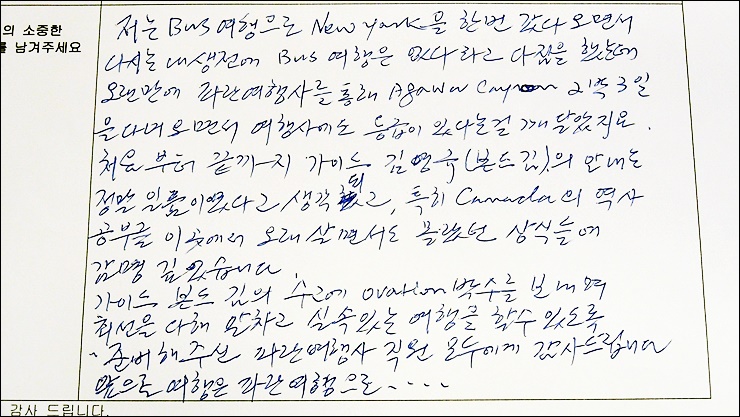 의 소중한
를 남겨주세요
저는 Bus 여행으로 New york을 한번 갔다 오면서
다시는 내생전에 Bus 여행은 없다 라고 다짐을 했는데
오랜만에 파란여행사를 통해 Agawa Canyon 2박 3일
을 다녀 오면서 여행사에도 등급이 있다는걸 깨달았지요.
처음부터 끝까지 가이드 김영국(본드김)의 안내는
정말 일품이였다고 생각되고, 특히 Canada의 역사
공부를 이곳에서 오래 살면서도 몰랐던 상식들에
감명 깊었습니다.
가이드 본드 김의 수고에 ovation 박수를 보내며
최선을 다해 알차고 실속있는 여행을 할수 있도록
준비해주신 파란여행사 직원 모두에게 감사드립니다
앞으로 여행은 파란 여행으로 ----
감사 드립니다.